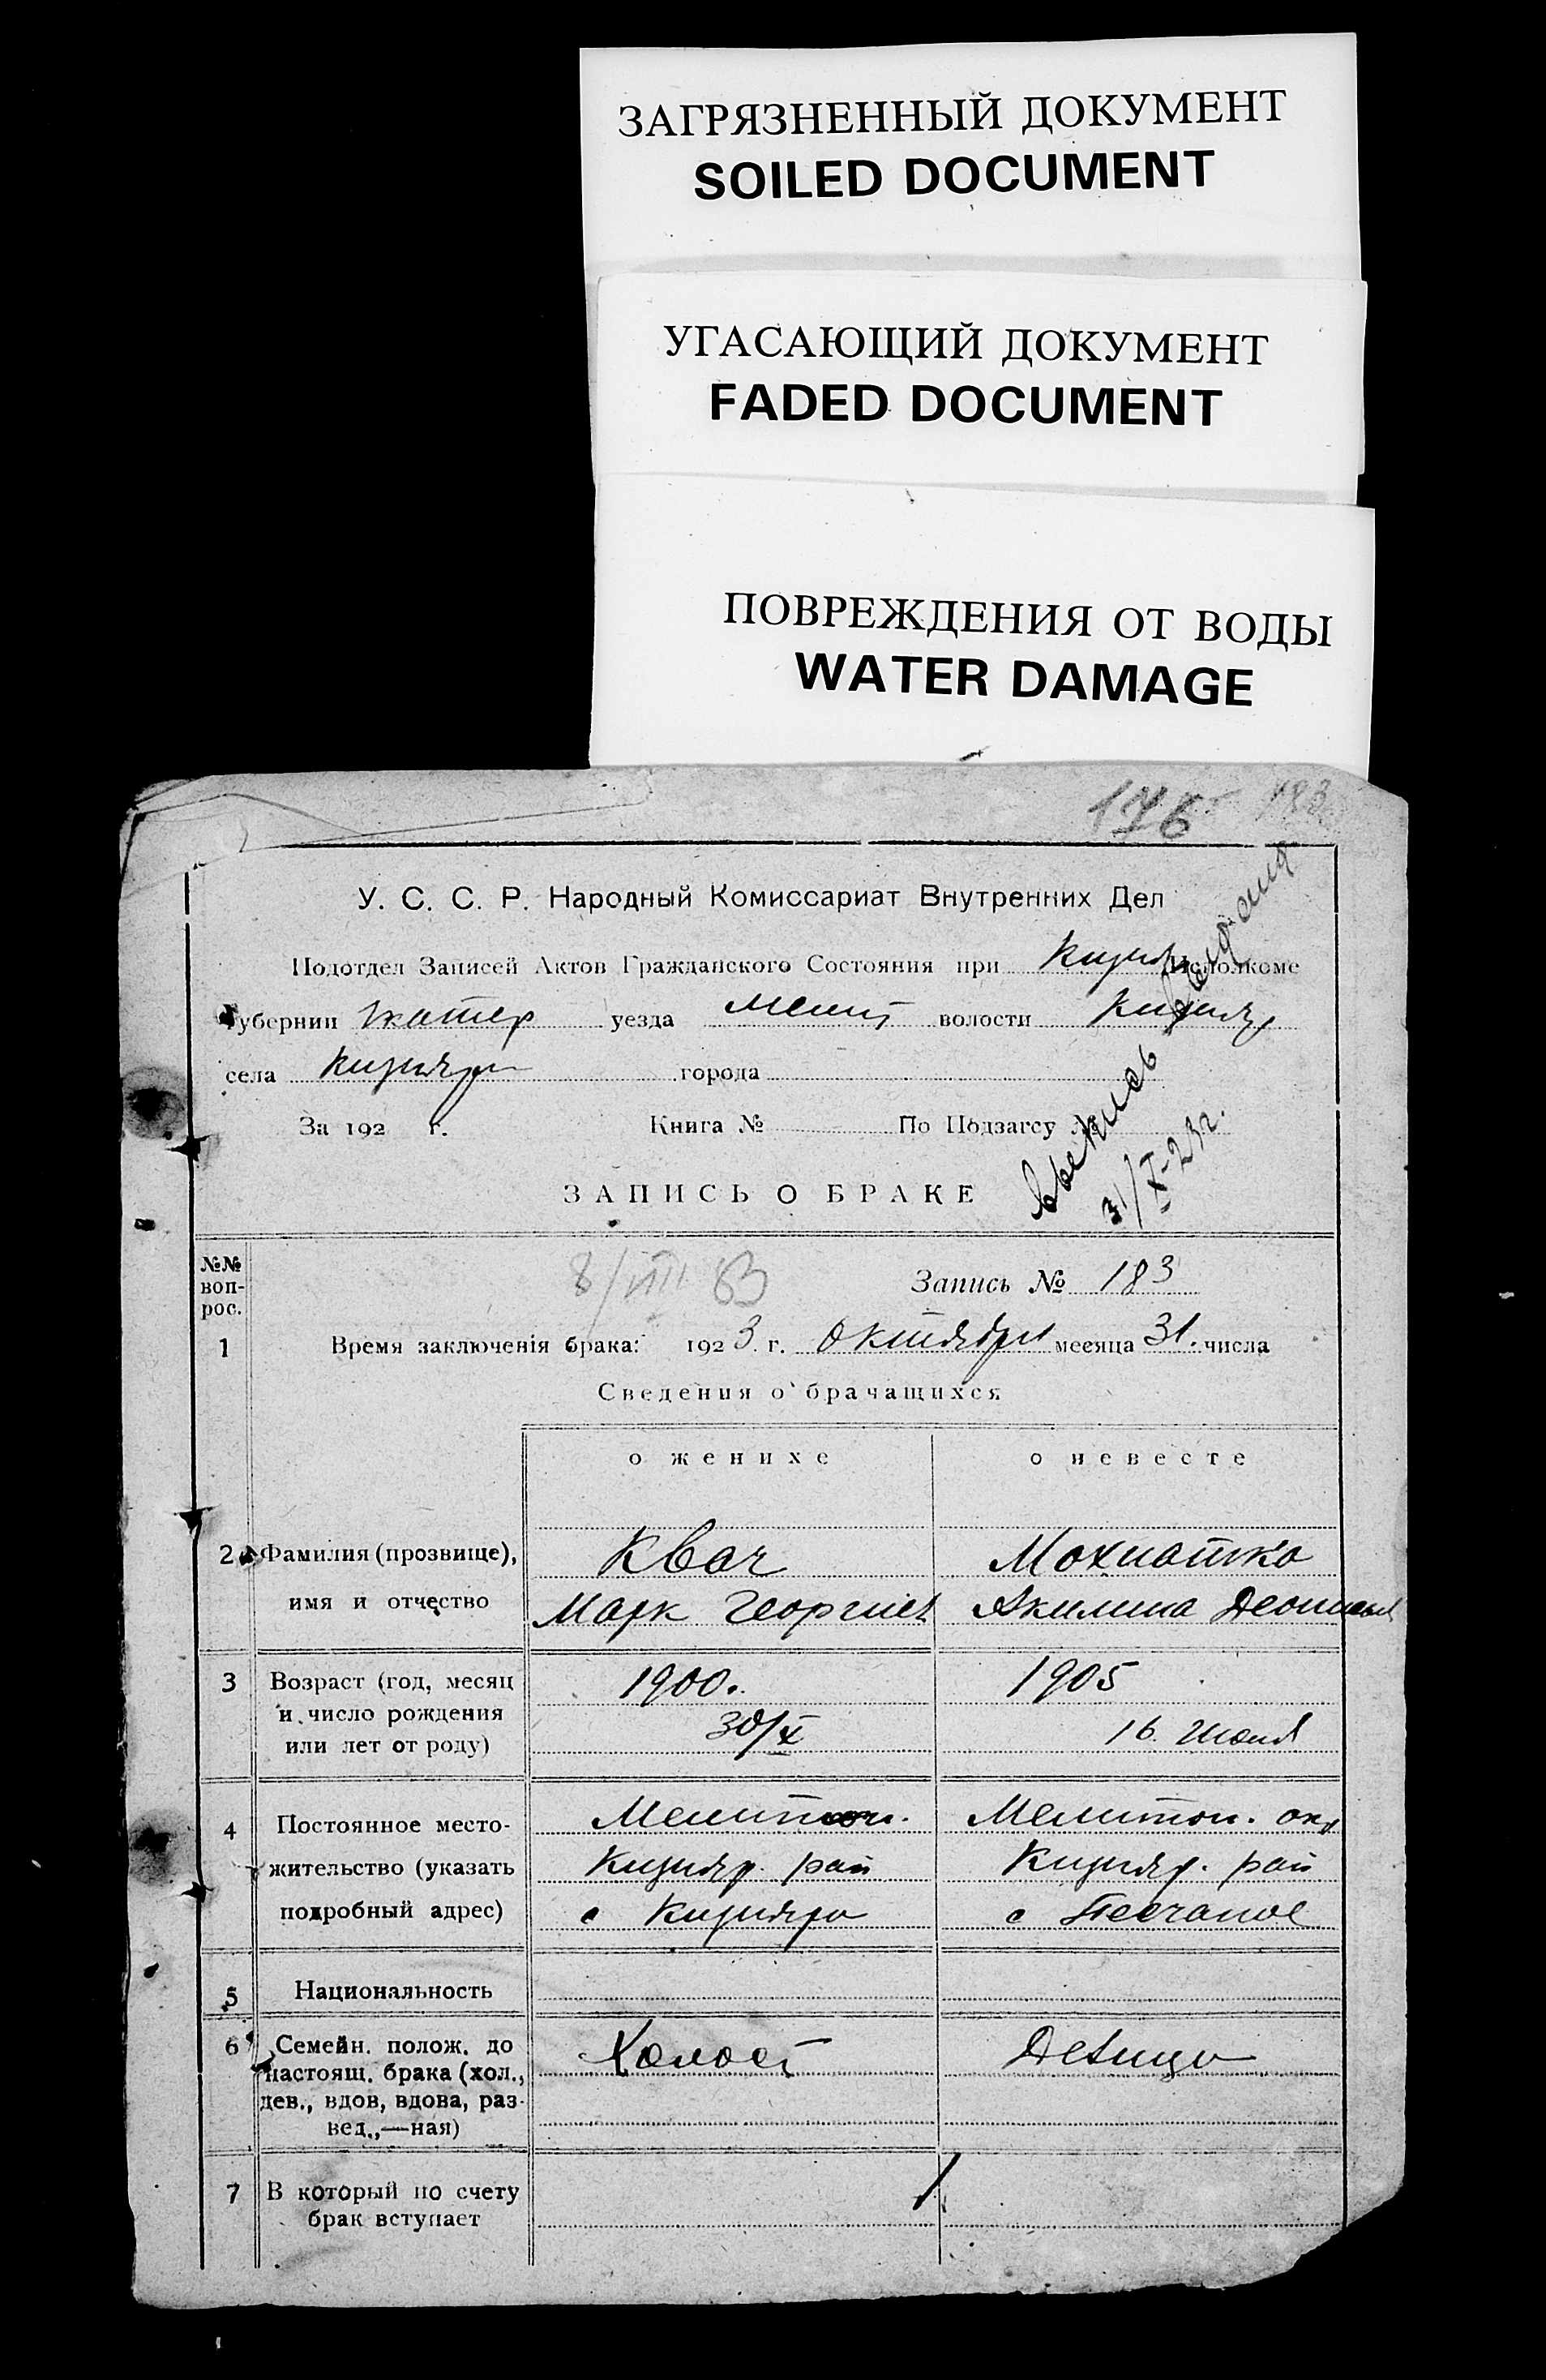 ЗАГРЯЗНЕННЫЙ ДОКУМЕНТ
SOILED DOCUMENT
УГАСАЮЩИЙ ДОКУМЕНТ
FADED DOCUMENT
ПОВРЕЖДЕНИЯ ОТ ВОДЫ
WATER DAMAGE
176 183
У. С. С. Р. Народный Комиссариат Внутренних Дел
Подотдел Записей Актов Гражданского Состояния при Кизияр Исполкоме
Губернии Екатер уезда Мелит волости Кизияр
села Кизияри города
За 192 г. Книга № По Подзагсу №
выпись выдана
31/X-23г.
ЗАПИСЬ О БРАКЕ
№№ воп-рос.
8/VIII 83
Запись № 183
1 Время заключенія брака: 1923 г. Октября месяца 31. числа
Сведения о брачащихся
о женихе о невесте
2 Фамилия (прозвище), Квач Мохнатко
имя и отчество Марк Георгиев Акилина Деонисьев
3 Возраст (год, месяц 1900. 1905
и число рождения
или лет от роду) 30/X 16. Июня
4 Постоянное место- Мелитоп. Мелитоп. окр
жительство (указать Кизияр. рай Кизияр. рай
подробный адрес) с Кизияри с Песчаное
5 Национальность
6 Семейн. полож. до Холост Девица
настоящ. брака (хол.,
дев., вдов, вдова, раз-
вед.,—ная)
7 В который по счету
брак вступает